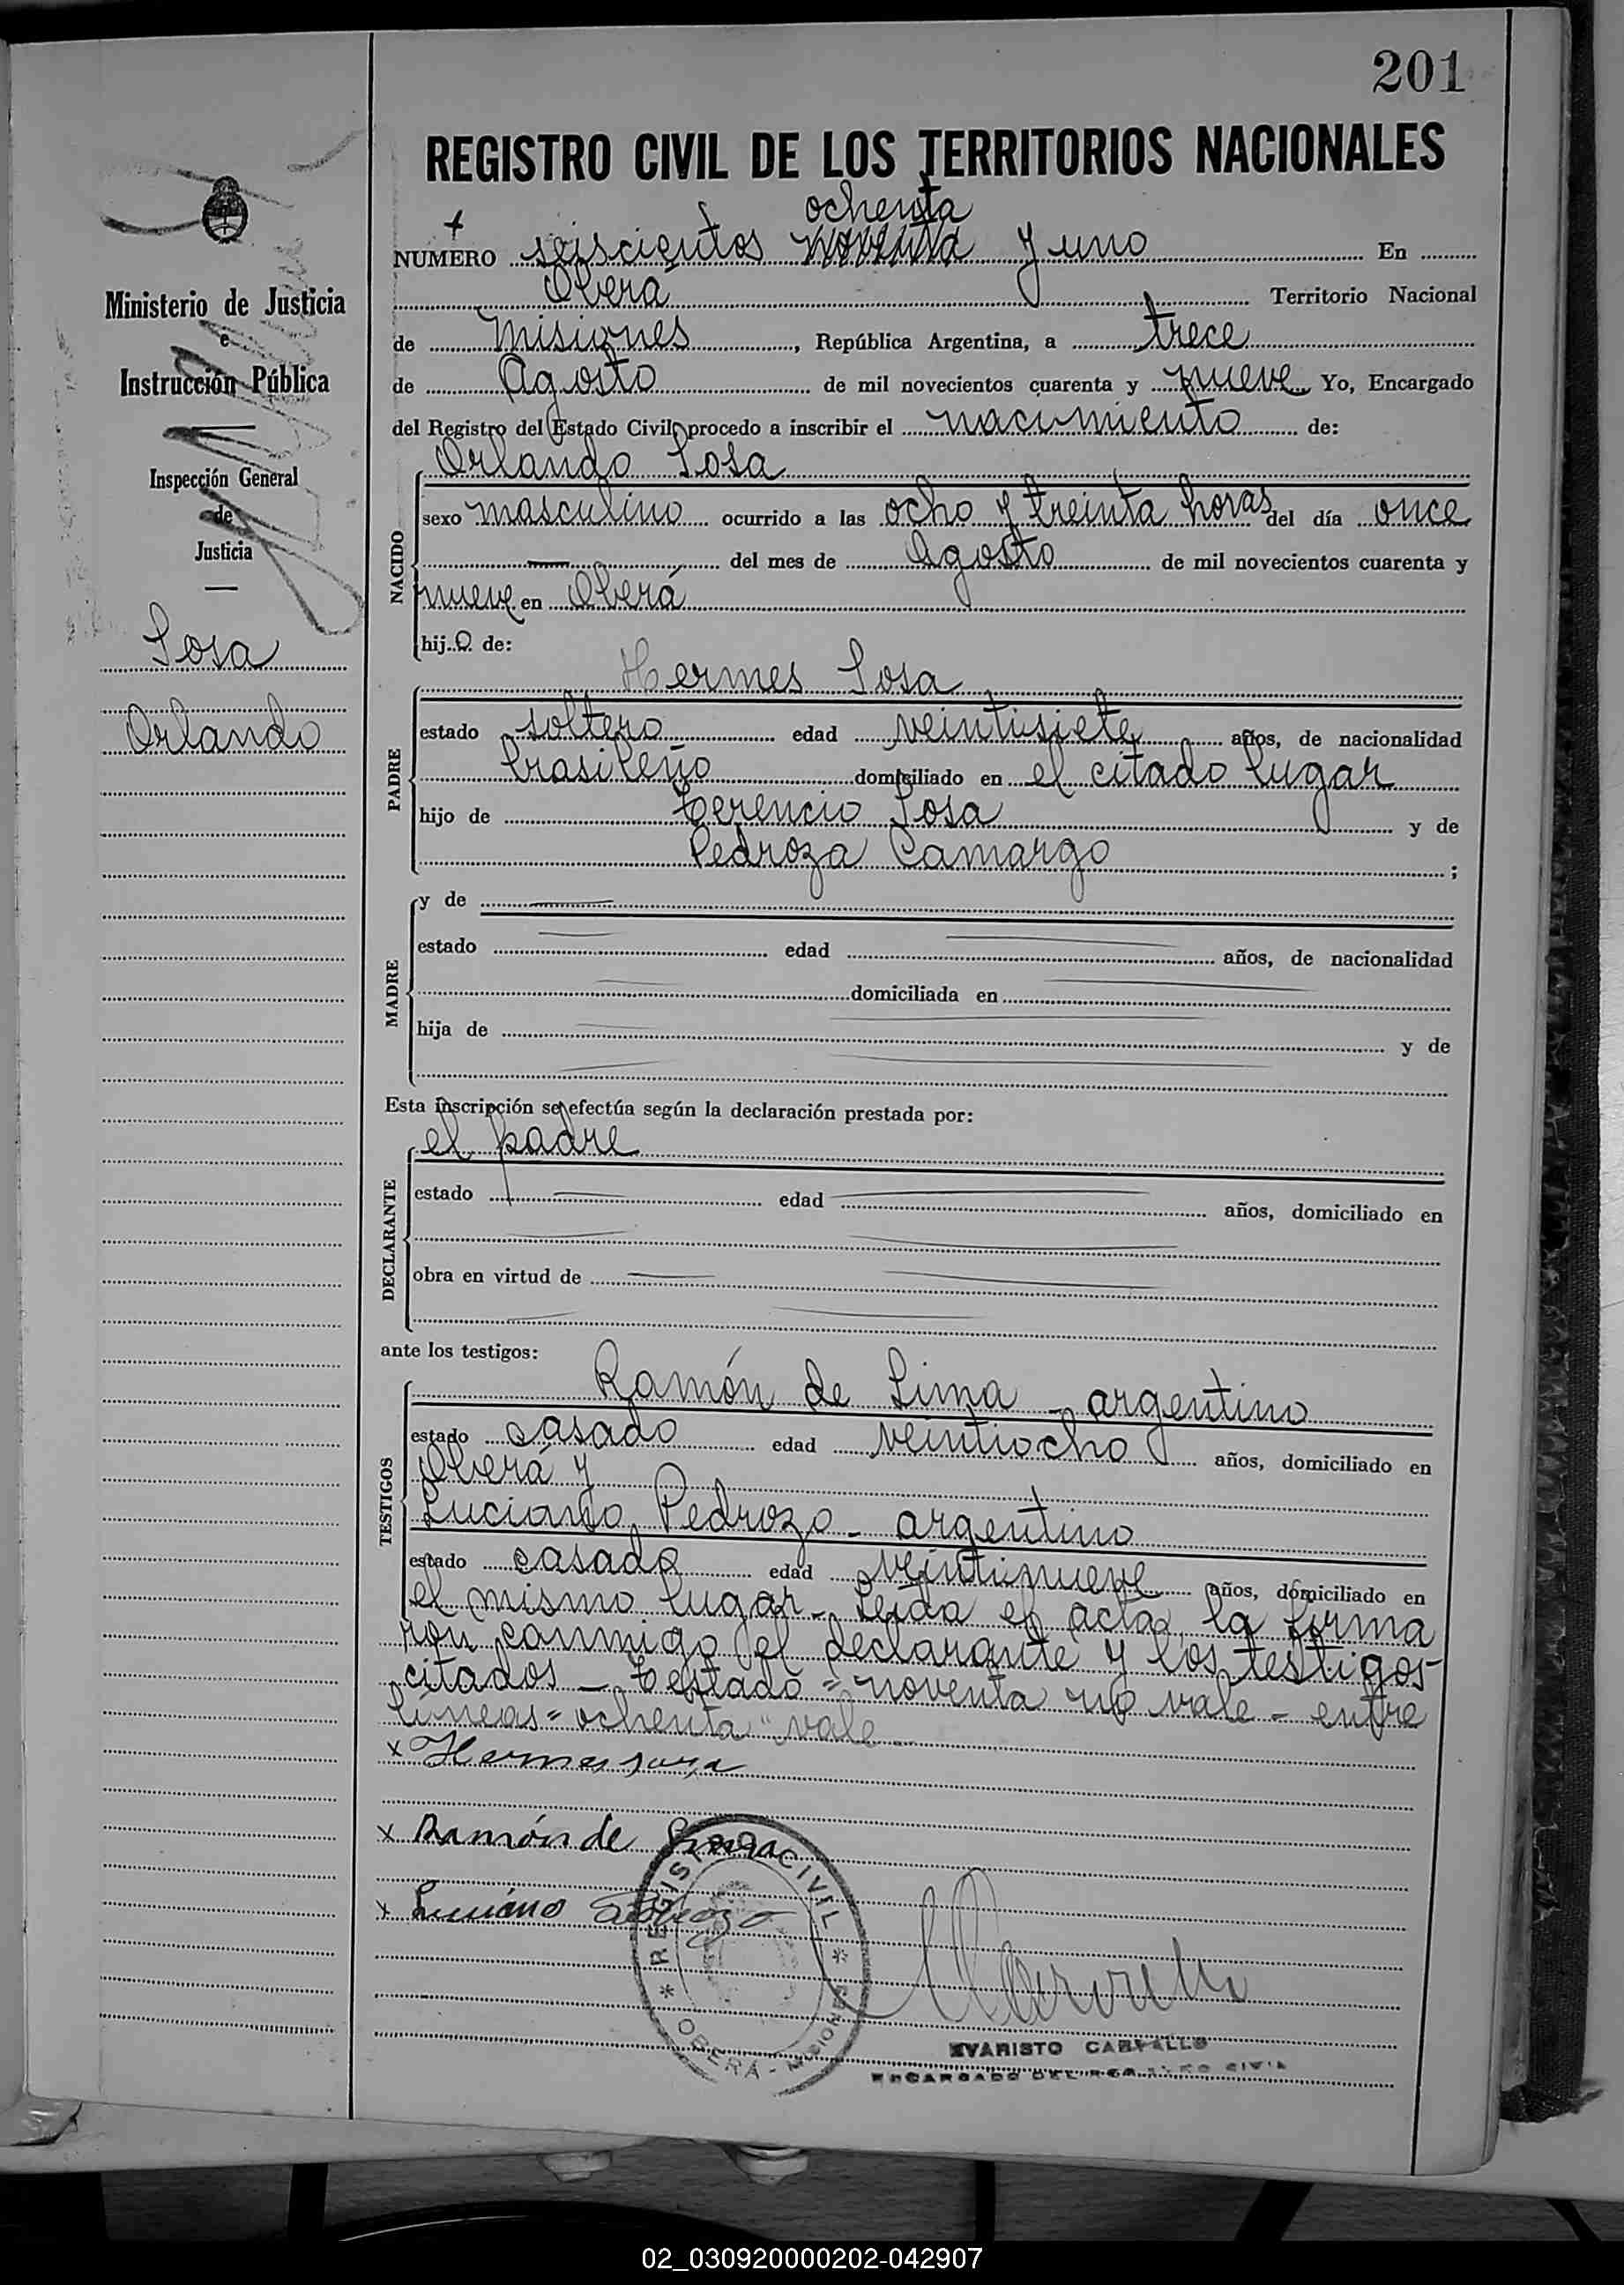 201
REGISTRO CIVIL DE LOS TERRITORIOS NACIONALES
ochenta
NUMERO seiscientos noventa y uno En
Oberá Territorio Nacional
de Misiones, República Argentina, a trece
de Agosto de mil novecientos cuarenta y nueve Yo, Encargado
del Registro del Estado Civil, procedo a inscribir el nacimiento de:
Orlando Sosa
NACIDO
sexo masculino ocurrido a las ocho y treinta horas del día once
del mes de Agosto de mil novecientos cuarenta y
nueve en Oberá
hijo de:
Hermes Sosa
PADRE
estado soltero edad veintisiete años, de nacionalidad
brasileño domiciliado en el citado lugar
hijo de Terencio Sosa y de
Pedroza Camargo ;
MADRE
y de
estado edad años, de nacionalidad
domiciliada en
hija de y de
Esta inscripción se efectúa según la declaración prestada por:
el padre
DECLARANTE
estado edad años, domiciliado en
obra en virtud de
ante los testigos:
TESTIGOS
Ramón de Lima - argentino
estado casado edad veintiocho años, domiciliado en
Oberá y
Luciano Pedrozo - argentino
estado casado edad veintinueve años, domiciliado en
el mismo lugar - Leída el acta, la firma
ron conmigo el declarante y los testigos
citados - Testado = noventa no vale - entre
líneas = ochenta" vale -
x Hermes sosa
x Ramón de Lima
x Luciano Pedrozo
REGISTRO CIVIL
* OBERÁ - MISIONES *
Carvallo
EVARISTO CARVALLO
ENCARGADO DEL REGISTRO CIVIL
Ministerio de Justicia
e
Instrucción Pública
Inspección General
de
Justicia
Sosa
Orlando
02_030920000202-042907